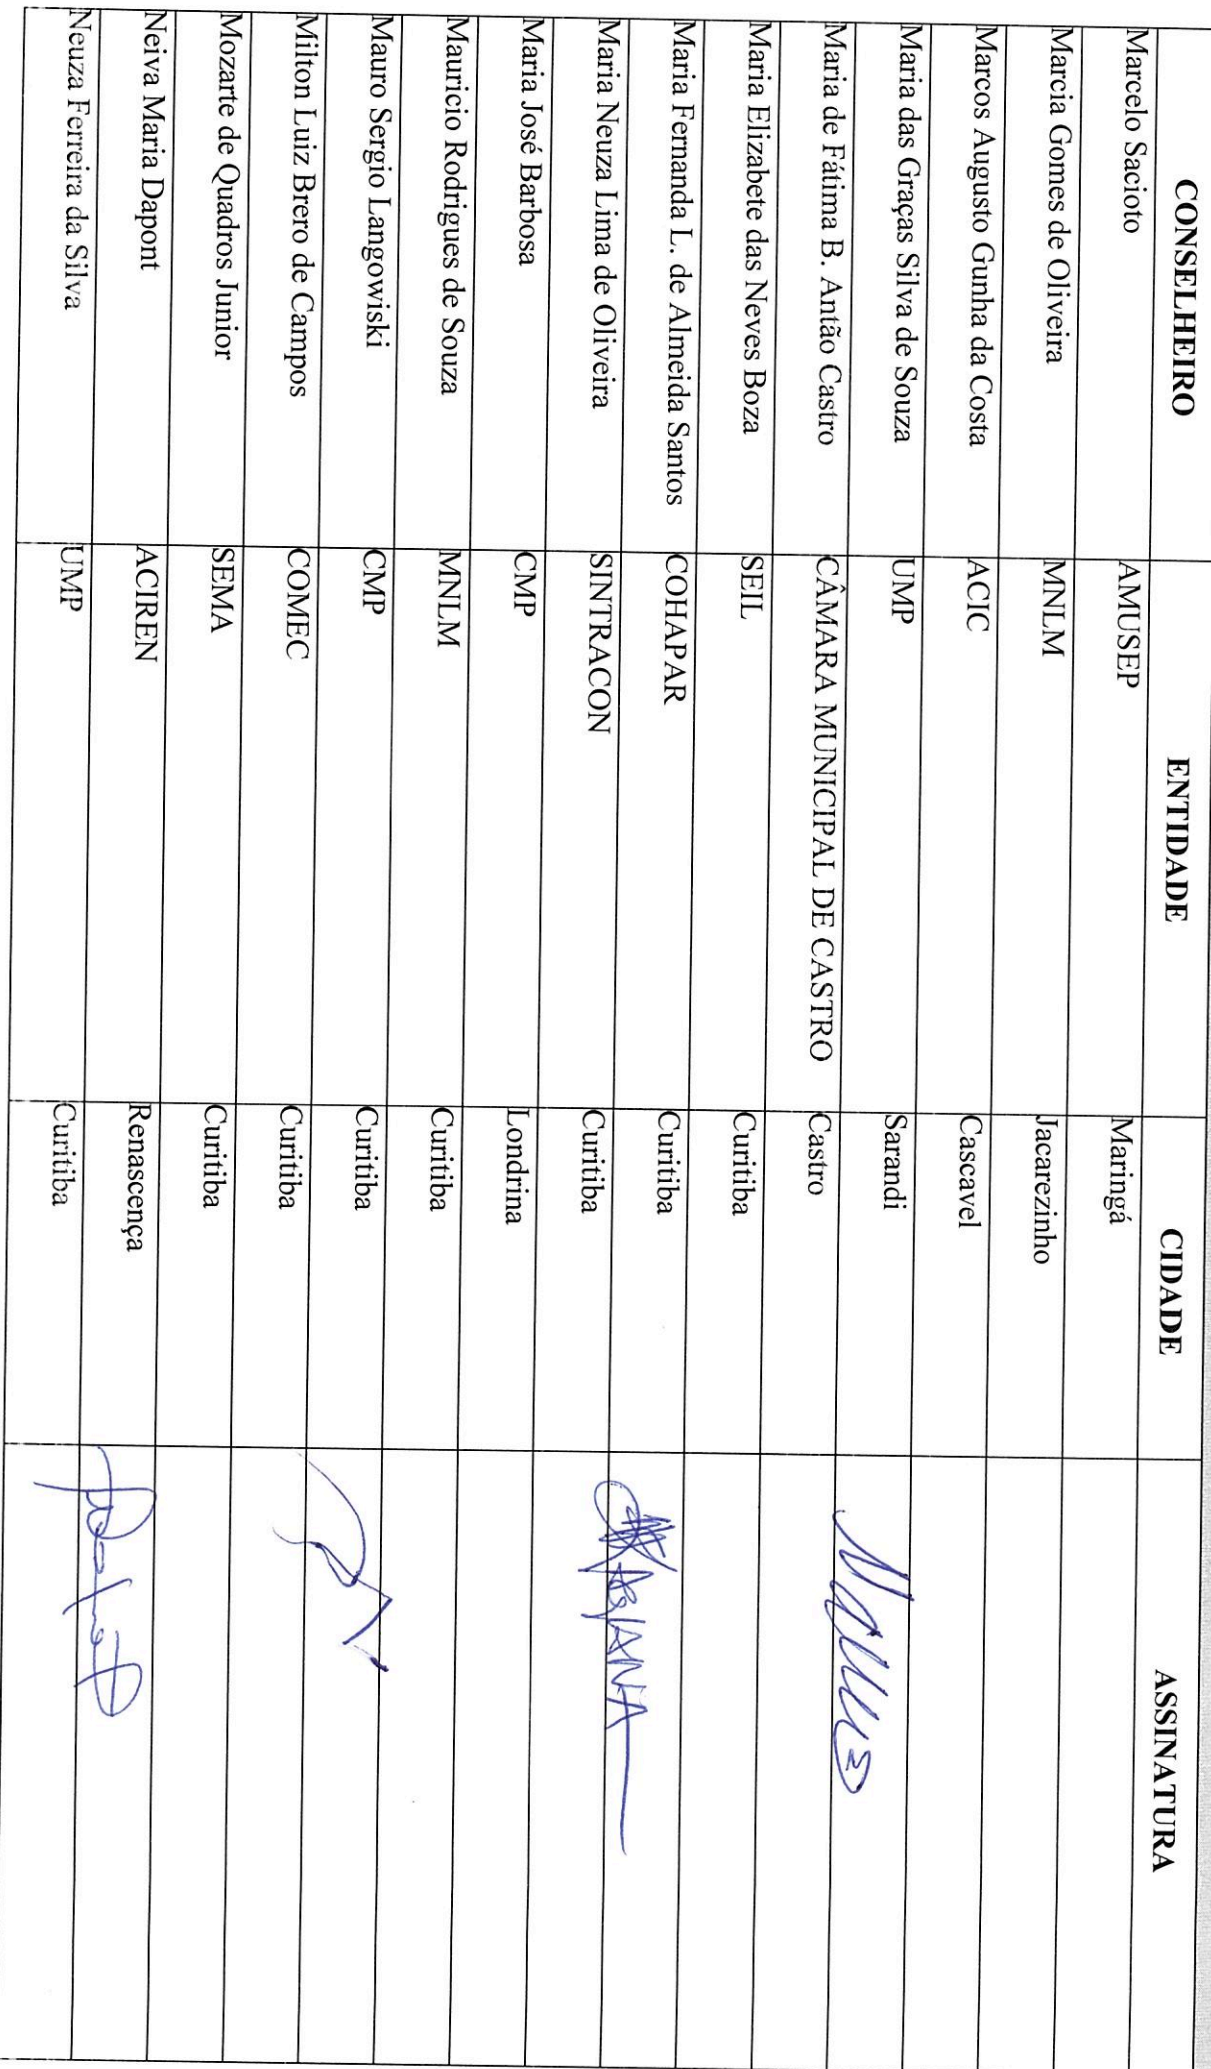 CONSELHEIRO ENTIDADE CIDADE ASSINATURA
Marcelo Sacioto AMUSEP Maringá
Marcia Gomes de Oliveira MNLM Jacarezinho
Marcos Augusto Gunha da Costa ACIC Cascavel
Maria das Graças Silva de Souza UMP Sarandi
Maria de Fátima B. Antão Castro CÂMARA MUNICIPAL DE CASTRO Castro
Maria Elizabete das Neves Boza SEIL Curitiba
Maria Fernanda L. de Almeida Santos COHAPAR Curitiba
Maria Neuza Lima de Oliveira SINTRACON Curitiba
Maria José Barbosa CMP Londrina
Mauricio Rodrigues de Souza MNLM Curitiba
Mauro Sergio Langowiski CMP Curitiba
Milton Luiz Brero de Campos COMEC Curitiba
Mozarte de Quadros Junior SEMA Curitiba
Neiva Maria Dapont ACIREN Renascença
Neuza Ferreira da Silva UMP Curitiba